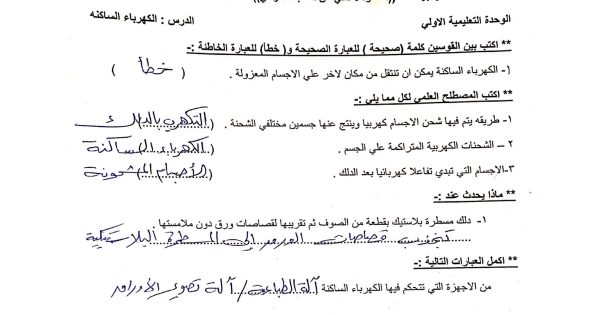 الوحدة التعليمية الاولي الدرس : الكهرباء الساكنه
** اكتب بين القوسين كلمة (صحيحة ) للعبارة الصحيحة و( خطأ) للعبارة الخاطئة :-
١- الكهرباء الساكنة يمكن ان تنتقل من مكان لاخر علي الاجسام المعزولة . ( خطأ )
** اكتب المصطلح العلمي لكل مما يلي :-
١- طريقه يتم فيها شحن الاجسام كهربيا وينتج عنها جسمين مختلفي الشحنة . ( التكهرب بالدلك )
٢ – الشحنات الكهربية المتراكمة علي الجسم . ( الكهرباء الساكنة )
٣-الاجسام التي تبدي تفاعلا كهربائيا بعد الدلك . ( الأجسام المشحونة )
** ماذا يحدث عند :-
١ - دلك مسطرة بلاستيك بقطعة من الصوف ثم تقريبها لقصاصات ورق دون ملامستها .
تنجذب قصاصات الورق إلى المسطرة البلاستيكية
** اكمل العبارات التالية :-
من الاجهزة التي تتحكم فيها الكهرباء الساكنة آلة الطباعة / آلة تصوير الأوراق